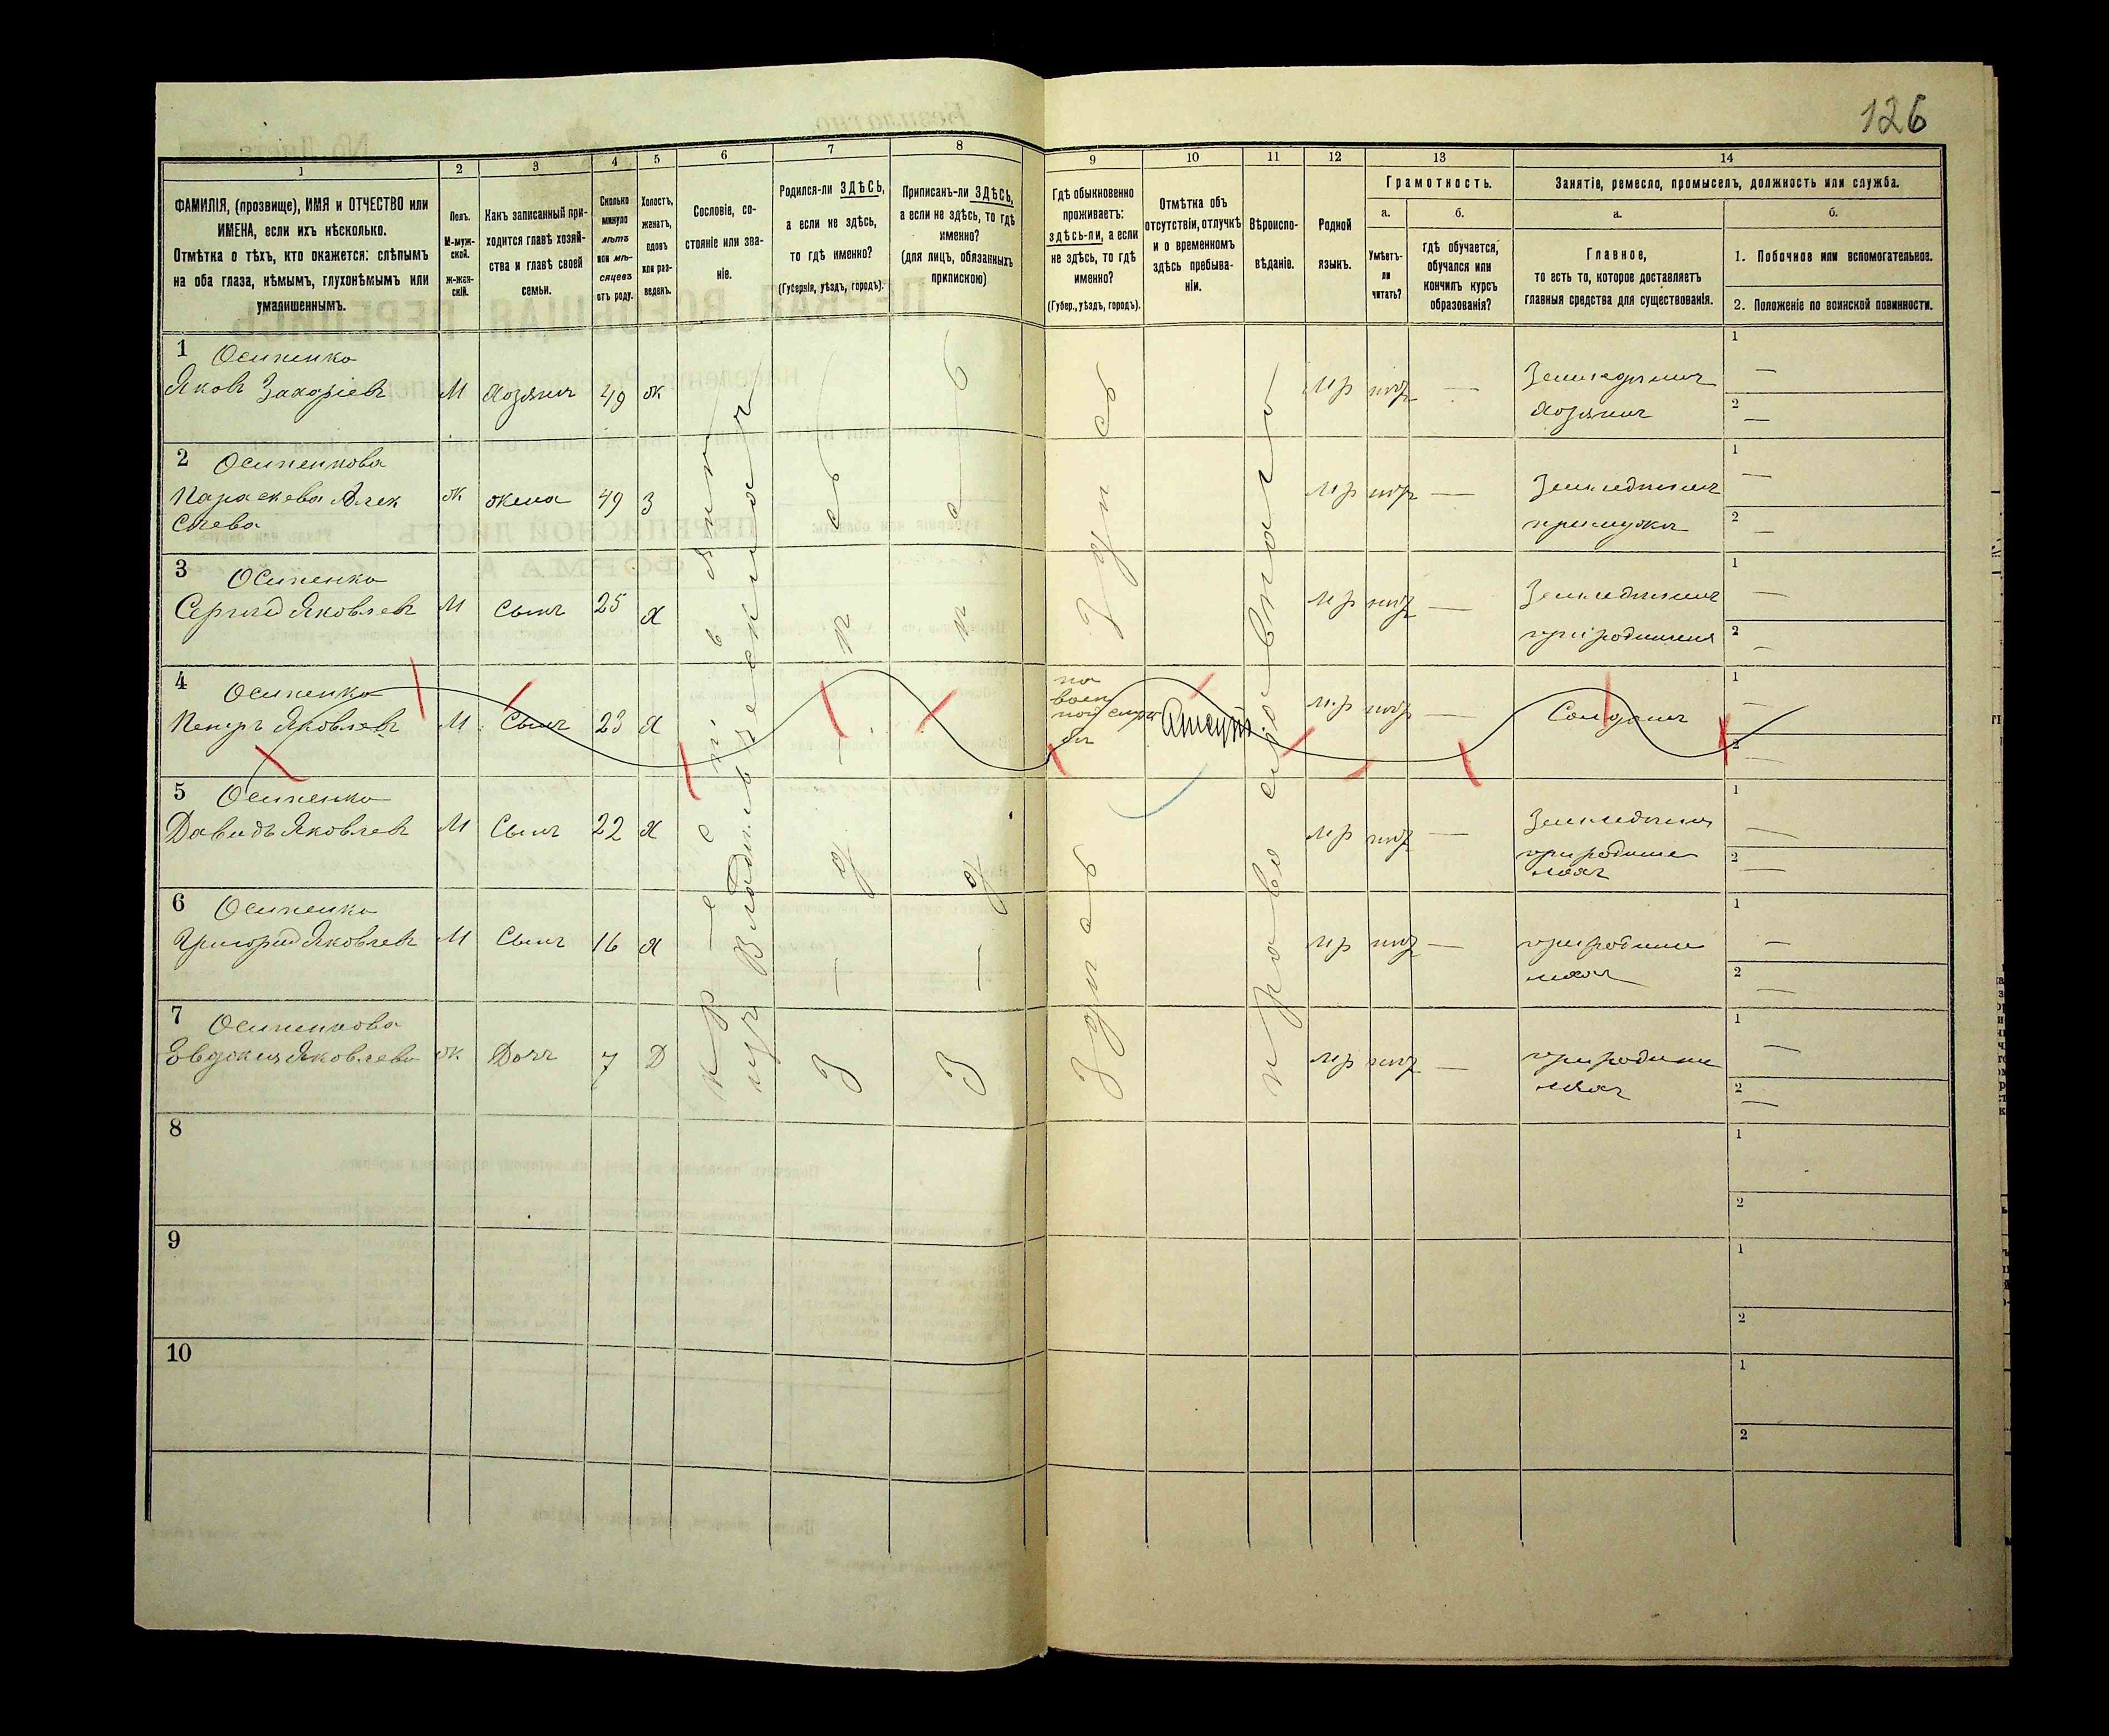 126
1
ФАМИЛІЯ, (прозвище), ИМЯ и ОТЧЕСТВО или
ИМЕНА, если ихъ нѣсколько.
Отмѣтка о тѣхъ, кто окажется: слѣпымъ
на оба глаза, нѣмымъ, глухонѣмымъ или
умалишеннымъ.
2
Полъ.
М-муж-
ской.
ж-жен-
скій.
3
Какъ записанный при-
ходится главѣ хозяй-
ства и главѣ своей
семьи.
4
Сколько
минуло
лѣтъ
или мѣ-
сяцевъ
отъ роду.
5
Холостъ,
женатъ,
вдовъ
или раз-
веденъ.
6
Сословіе, со-
стояніе или зва-
ніе.
7
Родился-ли ЗДѢСЬ,
а если не здѣсь,
то гдѣ именно?
(Губернія, уѣздъ, городъ).
8
Приписанъ-ли ЗДѢСЬ,
а если не здѣсь, то гдѣ
именно?
(для лицъ, обязанныхъ
припискою)
9
Гдѣ обыкновенно
проживаетъ:
здѣсь-ли, а если
не здѣсь, то гдѣ
именно?
(Губер., уѣздъ, городъ).
10
Отмѣтка объ
отсутствіи, отлучкѣ
и о временномъ
здѣсь пребыва-
ніи.
11
Вѣроиспо-
вѣданіе.
12
Родной
языкъ.
13
Грамотность.
а.
Умѣетъ-
ли
читать?
б.
гдѣ обучается,
обучался или
кончилъ курсъ
образованія?
14
Занятіе, ремесло, промыселъ, должность или служба.
а.
Главное,
то есть то, которое доставляетъ
главныя средства для существованія.
б.
1. Побочное или вспомогательное.
2. Положеніе по воинской повинности.
1 Осипенко
Яковъ Захаріевъ М Хозяинъ 49 ж мр нѣтъ — Земледѣлецъ
хозяинъ
1 —
2 —
2 Осипенкова
Параскева Алек
сѣева ж жена 49 З мр нѣтъ — Земледѣлецъ
при мужѣ
1 —
2 —
3 Осипенко
Сергій Яковлевъ М Сынъ 25 Х мр нѣтъ — Земледѣлецъ
1 —
2 —
4 Осипенко
Петръ Яковлевъ М Сынъ 23 Х на
воен
ной служ
бѣ Отсут мр нѣтъ — Солдатъ
1 —
2 —
5 Осипенко
Давидъ Яковлевъ М Сынъ 22 Х мр нѣтъ — Земледѣлецъ
при родите
ляхъ
1 —
2 —
6 Осипенко
Григорій Яковлевъ М Сынъ 16 Х мр нѣтъ — при родите
ляхъ
1 —
2 —
7 Осипенкова
Евдокия Яковлева ж Дочь 7 Д мр нѣтъ — при родите
ляхъ
1 —
2 —
крестьянинъ
изъ Владѣльческихъ
Здѣсь
Здѣсь
Здѣсь
Здѣсь
православного
8
1
2
9
1
2
10
1
2